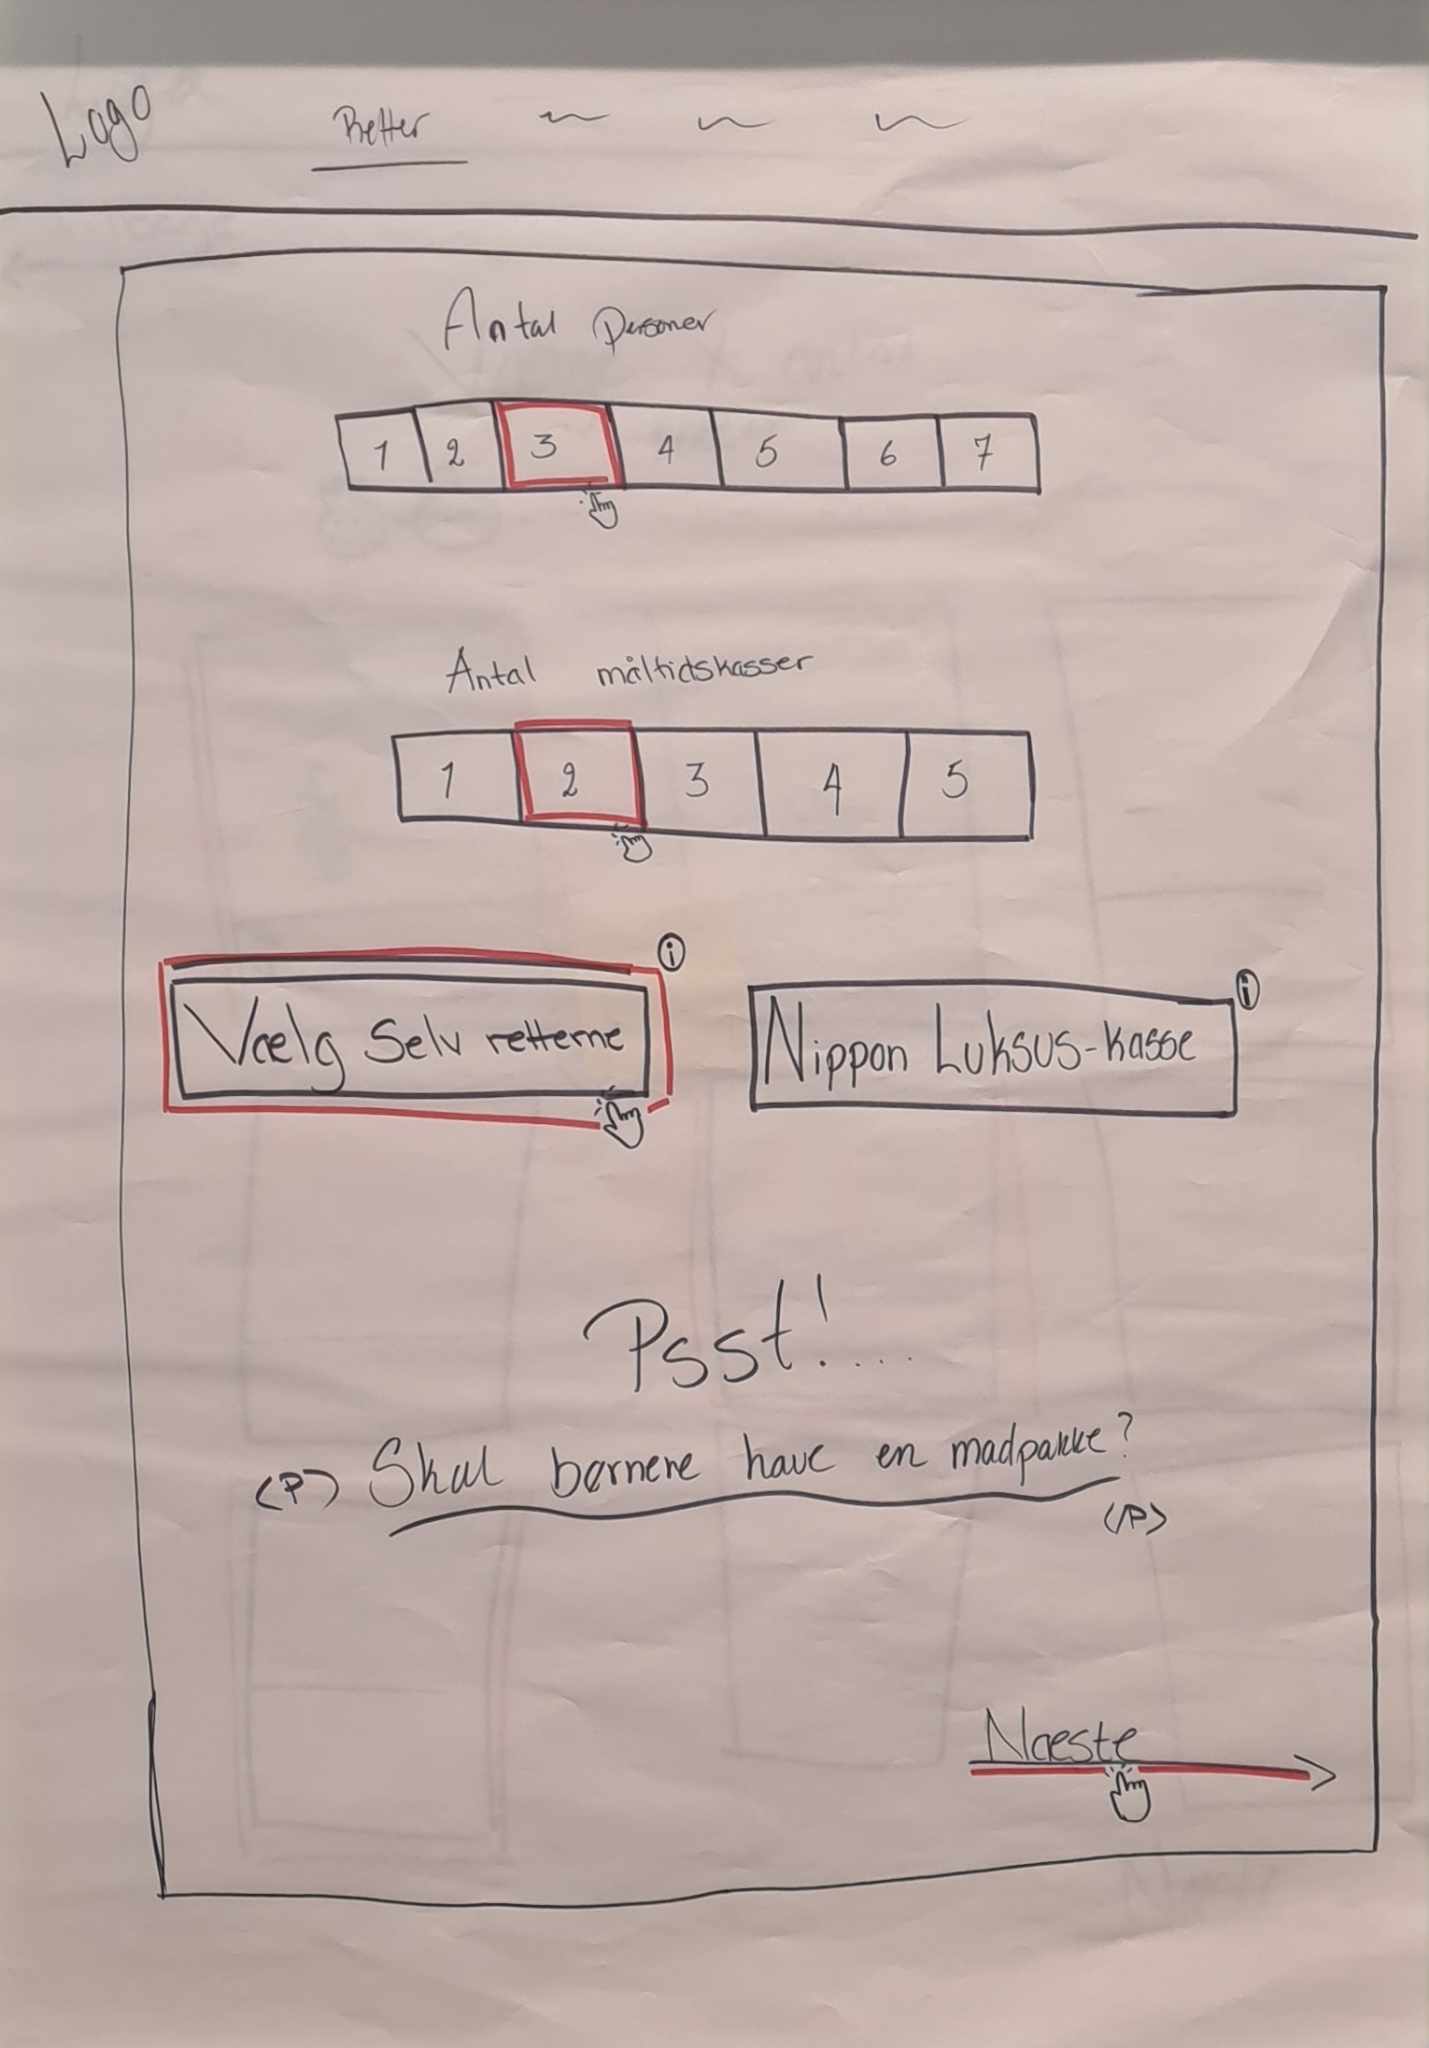 Logo Retter
Antal personer
1 2 3 4 5 6 7
Antal måltidskasser
1 2 3 4 5
i i
Vælg Selv retterne Nippon Luksus-kasse
Psst!....
<P> Skal børnene have en madpakke?
</P>
Næste